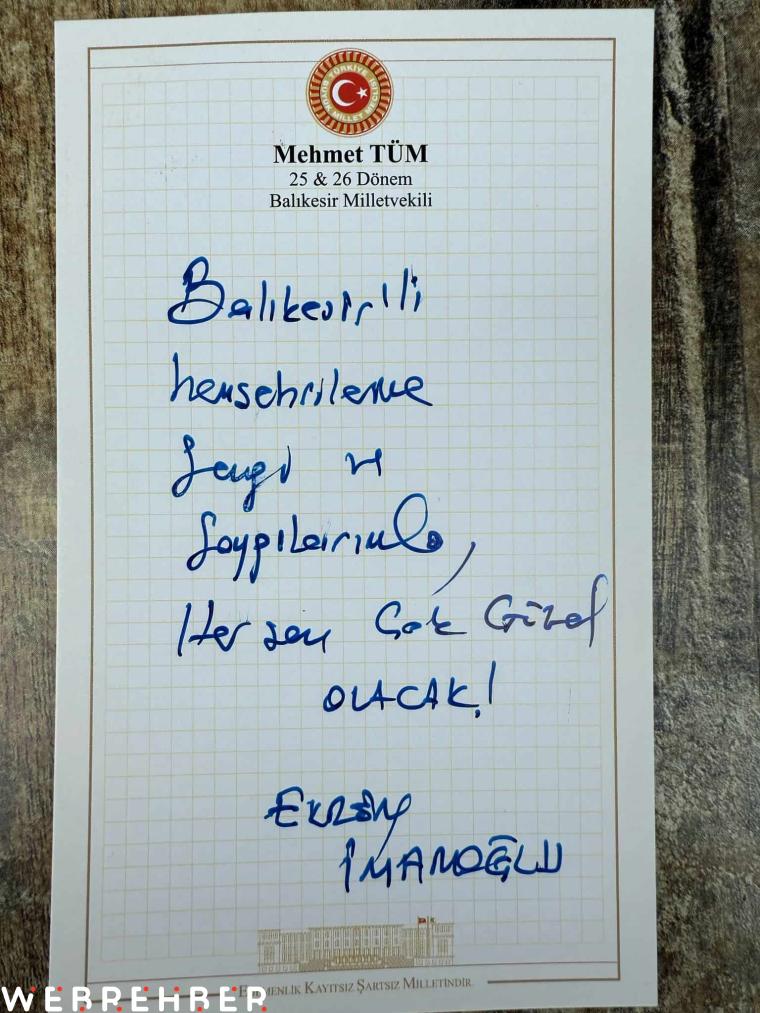 TÜRKİYE BÜYÜK MİLLET MECLİSİ
Mehmet TÜM
25 & 26 Dönem
Balıkesir Milletvekili
Balıkesirili
hemşehrilerime
Sevgi ve
Saygılarımla,
Her şey Çok Güzel
OLACAK!
EKREM
İMAMOĞLU
KAYITSIZ ŞARTSIZ MİLLETİNDİR.
WEBREHBER